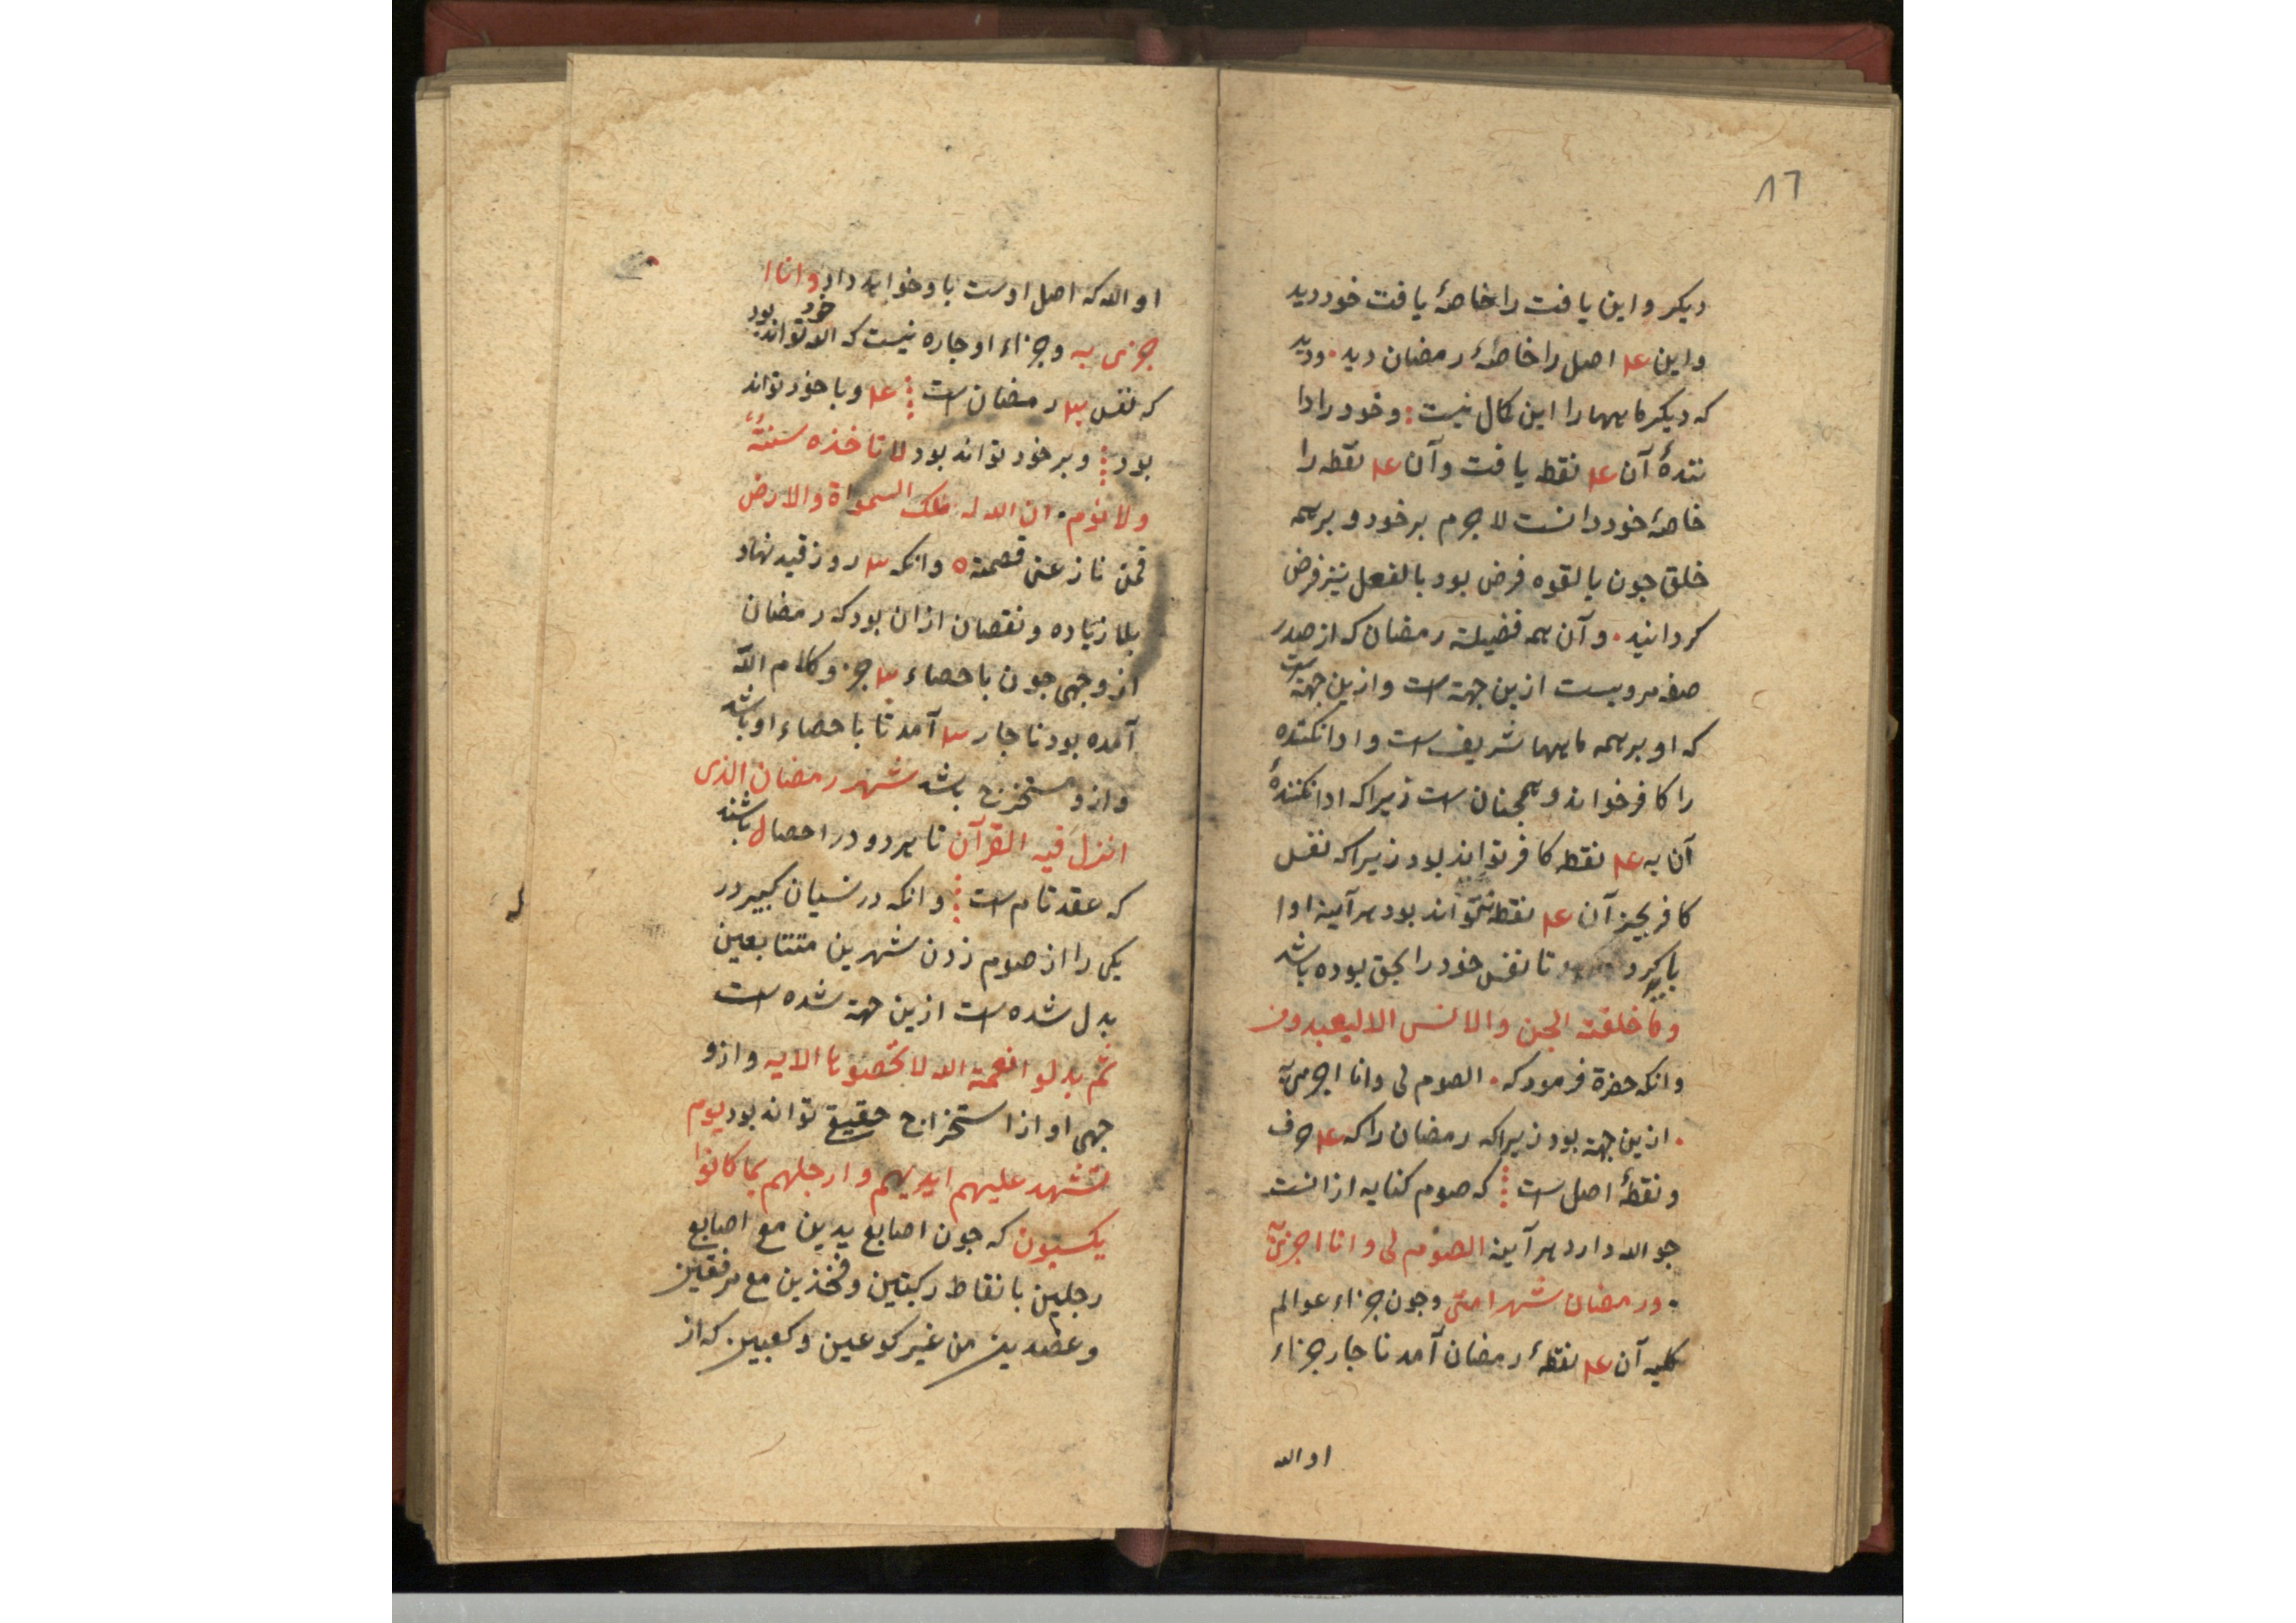 ٨٦
دیکر و این یافت را خاصهٔ یافت خود دید
و این ١٤ اصل را خاصهٔ رمضان دید . و دید
که دیکر ماهها را این کمال نیست : و خود را ادا
کنندهٔ آن ١٤ نقطه یافت و آن ١٤ نقطه را
خاصهٔ خود دانست لاجرم بر خود و بر همه
خلق جون بالقوه فرض بود بالفعل نیز فرض
کردانید . و آن همه فضیلة رمضان که از صدر
مرویست ازین جهة است و ازین جهة است
که او بر همه ماهها شریف است و ادا نکننده
را کافر خواند و همجنان است زیرا که ادا نکنندهٔ
آن به ١٤ نقطه کافر تواند بود زیرا که نفس
کافر بجز آن ١٤ نقطه نتواند بود هرآینه ادا
باید کرد تا نفس خود را بحق بوده باشد
وما خلقت الجن والانس الا لیعبدون
و انکه حضرة فرمود که . الصوم لی وانا اجزی به
. ازین جهة بود زیرا که رمضان را که ١٤ حرف
و نقطهٔ اصل است که صوم کنایه از انست
جو الله دارد هرآینه الصوم لی وانا اجزی به
. و رمضان شهر امتی و جون جزاء عوالم
کلیه آن ١٤ نقطهٔ رمضان آمد ناجار جزاء
او الله
او الله که اصل اوست باو خواهد داد وانا ا
جزی به و جزاء او جاره نیست که الله تواند خود بود
که نفس ٣ رمضان است ١٤ و با خود تواند
بود و بر خود تواند بود لا تاخذه سنة
ولا نوم . ان الله له ملک السمواة والارض
فمن نازعنی قصمته ٥ وانکه ٣ روز قید نهاد
بلا زیاده و نقصان از ان بود که رمضان
از وجهی جون باحصاء ٣ جزو کلام الله
آمده بود ناجار ٣ آمد تا باحصاء او باشد
و ازو مستخرج باشد شهر رمضان الذی
انزل فیه القرآن تا هر دو در احصال باشند
که عقد تام است وانکه در نسیان کبیر در
یکی را از صوم زدن شهرین متتابعین
بدل شده است ازین جهة شده است
ثم بدلوا نعمة الله لا تحصوها الایه و ازو
جهی او از استخراج حقیق تواند بود یوم
تشهد علیهم ایدیهم وارجلهم بما کانوا
یکسبون که جون اصابع یدین مع اصابع
رجلین با نقاط رکبتین و فخذین مع مرفقین
و عضدین من غیر کوعین و کعبین . که از